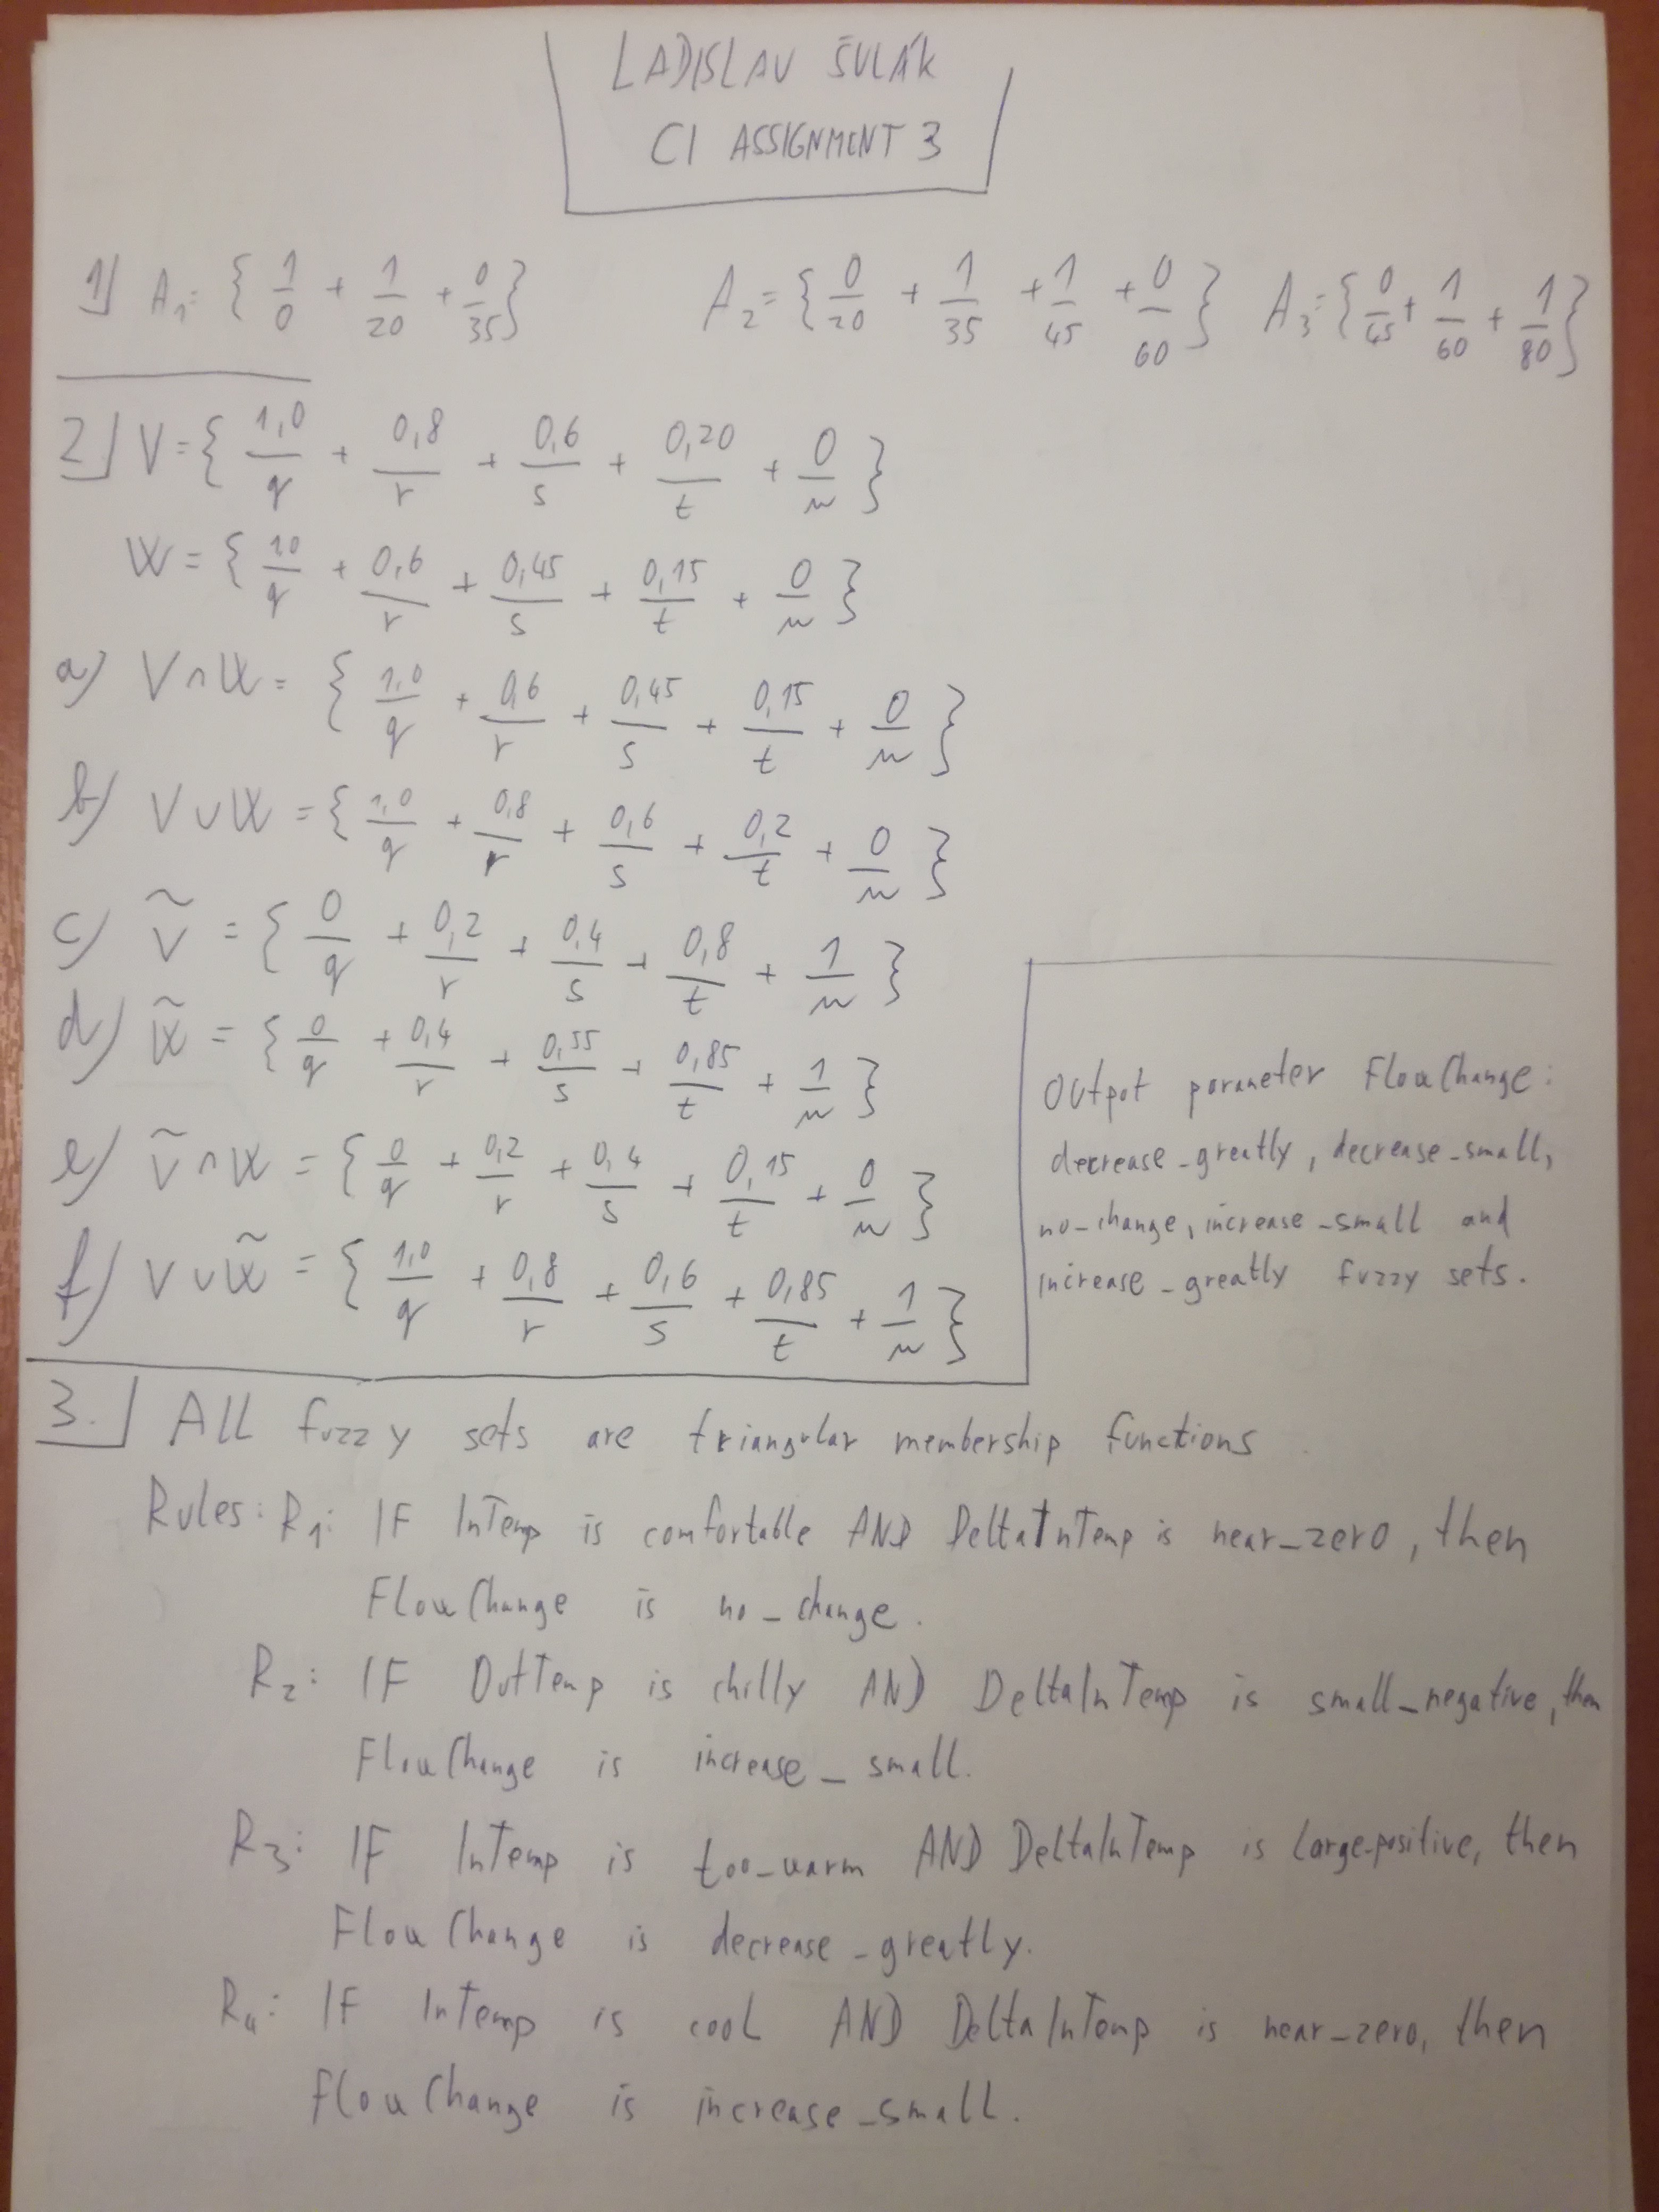 LADISLAV ŠULÁK
CI ASSIGNMENT 3
1) A₁= { 1/0 + 1/20 + 0/35 } A₂= { 0/20 + 1/35 + 1/45 + 0/60 } A₃= { 0/45 + 1/60 + 1/80 }
2) V = { 1,0/q + 0,8/r + 0,6/s + 0,20/t + 0/u }
W = { 10/q + 0,6/r + 0,45/s + 0,15/t + 0/u }
a) V ∩ W = { 1,0/q + 0,6/r + 0,45/s + 0,15/t + 0/u }
b) V ∪ W = { 1,0/q + 0,8/r + 0,6/s + 0,2/t + 0/u }
c) Ṽ = { 0/q + 0,2/r + 0,4/s + 0,8/t + 1/u }
d) W̃ = { 0/q + 0,4/r + 0,55/s + 0,85/t + 1/u }
e) Ṽ ∩ W = { 0/q + 0,2/r + 0,4/s + 0,15/t + 0/u }
f) V ∪ W̃ = { 1,0/q + 0,8/r + 0,6/s + 0,85/t + 1/u }
Output parameter FlowChange:
decrease_greatly, decrease_small,
no_change, increase_small and
increase_greatly fuzzy sets.
3.) All fuzzy sets are triangular membership functions
Rules: R₁: IF InTemp is comfortable AND DeltaInTemp is near_zero, then
FlowChange is no_change.
R₂: IF OutTemp is chilly AND DeltaInTemp is small_negative, then
FlowChange is increase_small.
R₃: IF InTemp is too_warm AND DeltaInTemp is large_positive, then
FlowChange is decrease_greatly.
R₄: IF InTemp is cool AND DeltaInTemp is near_zero, then
FlowChange is increase_small.